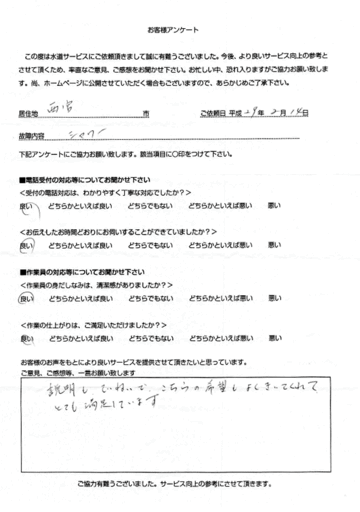 お客様アンケート
この度は水道サービスにご依頼頂きまして誠に有難うございました。今後、より良いサービス向上の参考と
させて頂くため、率直なご意見、ご感想をお聞かせ下さい。お忙しい中、恐れ入りますがご協力お願い致しま
す。尚、ホームページに公開させていただく場合もございますので、あらかじめご了承下さい。
居住地 西宮 市 ご依頼日 平成 29年 2月 14日
故障内容 シャワー
下記アンケートにご協力お願い致します。該当項目に〇印をつけて下さい。
■電話受付の対応等についてお聞かせ下さい
<受付の電話対応は、わかりやすく丁寧な対応でしたか？>
良い どちらかといえば良い どちらでもない どちらかといえば悪い 悪い
<お伝えしたお時間どおりにお伺いすることができていましたか？>
良い どちらかといえば良い どちらでもない どちらかといえば悪い 悪い
■作業員の対応等についてお聞かせ下さい
<作業員の身だしなみは、清潔感がありましたか？>
良い どちらかといえば良い どちらでもない どちらかといえば悪い 悪い
<作業の仕上がりは、ご満足いただけましたか？>
良い どちらかといえば良い どちらでもない どちらかといえば悪い 悪い
お客様のお声をもとにより良いサービスを提供させて頂きたいと思っています。
ご意見、ご感想等、一言お願い致します
説明もていねいで、こちらの希望もよくきいてくれて
とても満足しています
ご協力有難うございました。サービス向上の参考にさせて頂きます。